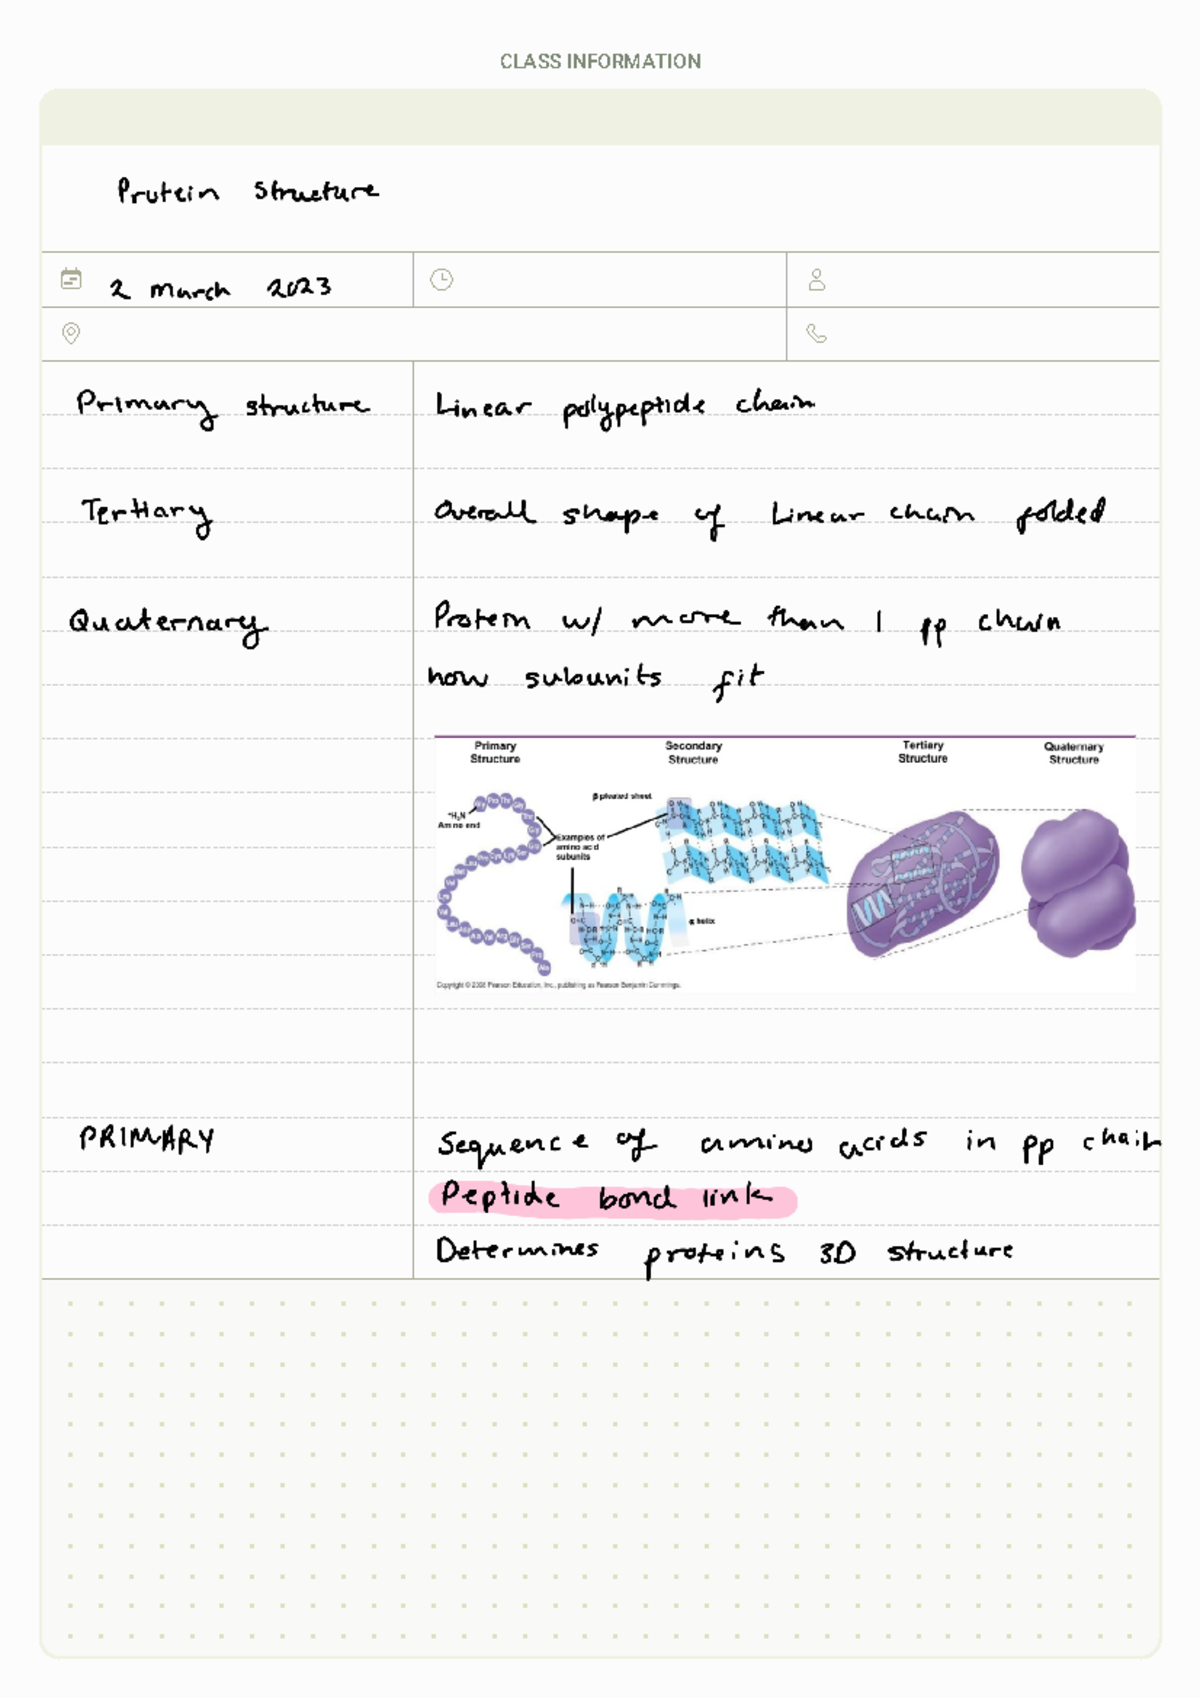 CLASS INFORMATION
Protein Structure
2 March 2023
Primary structure Linear polypeptide chain
Tertiary Overall shape of Linear chain folded
Quaternary Protein w/ more than 1 pp chain
how subunits fit
Primary Structure
Secondary Structure
Tertiary Structure
Quaternary Structure
β pleated sheet
⁺H₃N
Amino end
Examples of
amino acid
subunits
α helix
Copyright © 2008 Pearson Education, Inc., publishing as Pearson Benjamin Cummings.
PRIMARY Sequence of amino acids in pp chain
Peptide bond link
Determines proteins 3D structure